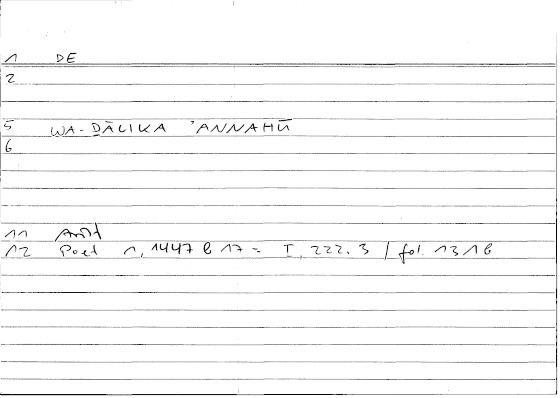 1 DE
2
5 WA-ḎĀLIKA ʾANNAHŪ
6
11 Arist
12 Poet 1, 1447 b 17 = I, 222.3 / fol. 131b